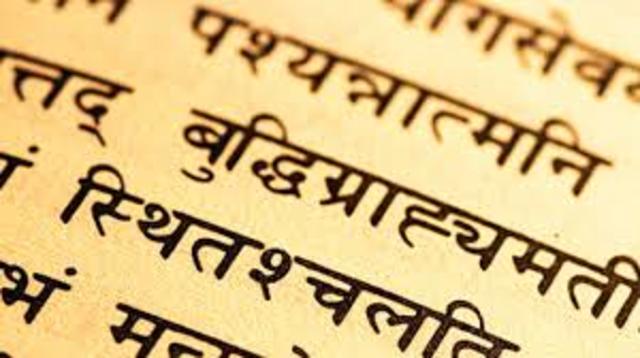 योगसेवय
पश्यन्नात्मनि
त्तद् बुद्धिग्राह्यमती
यं स्थितश्चलति
भं